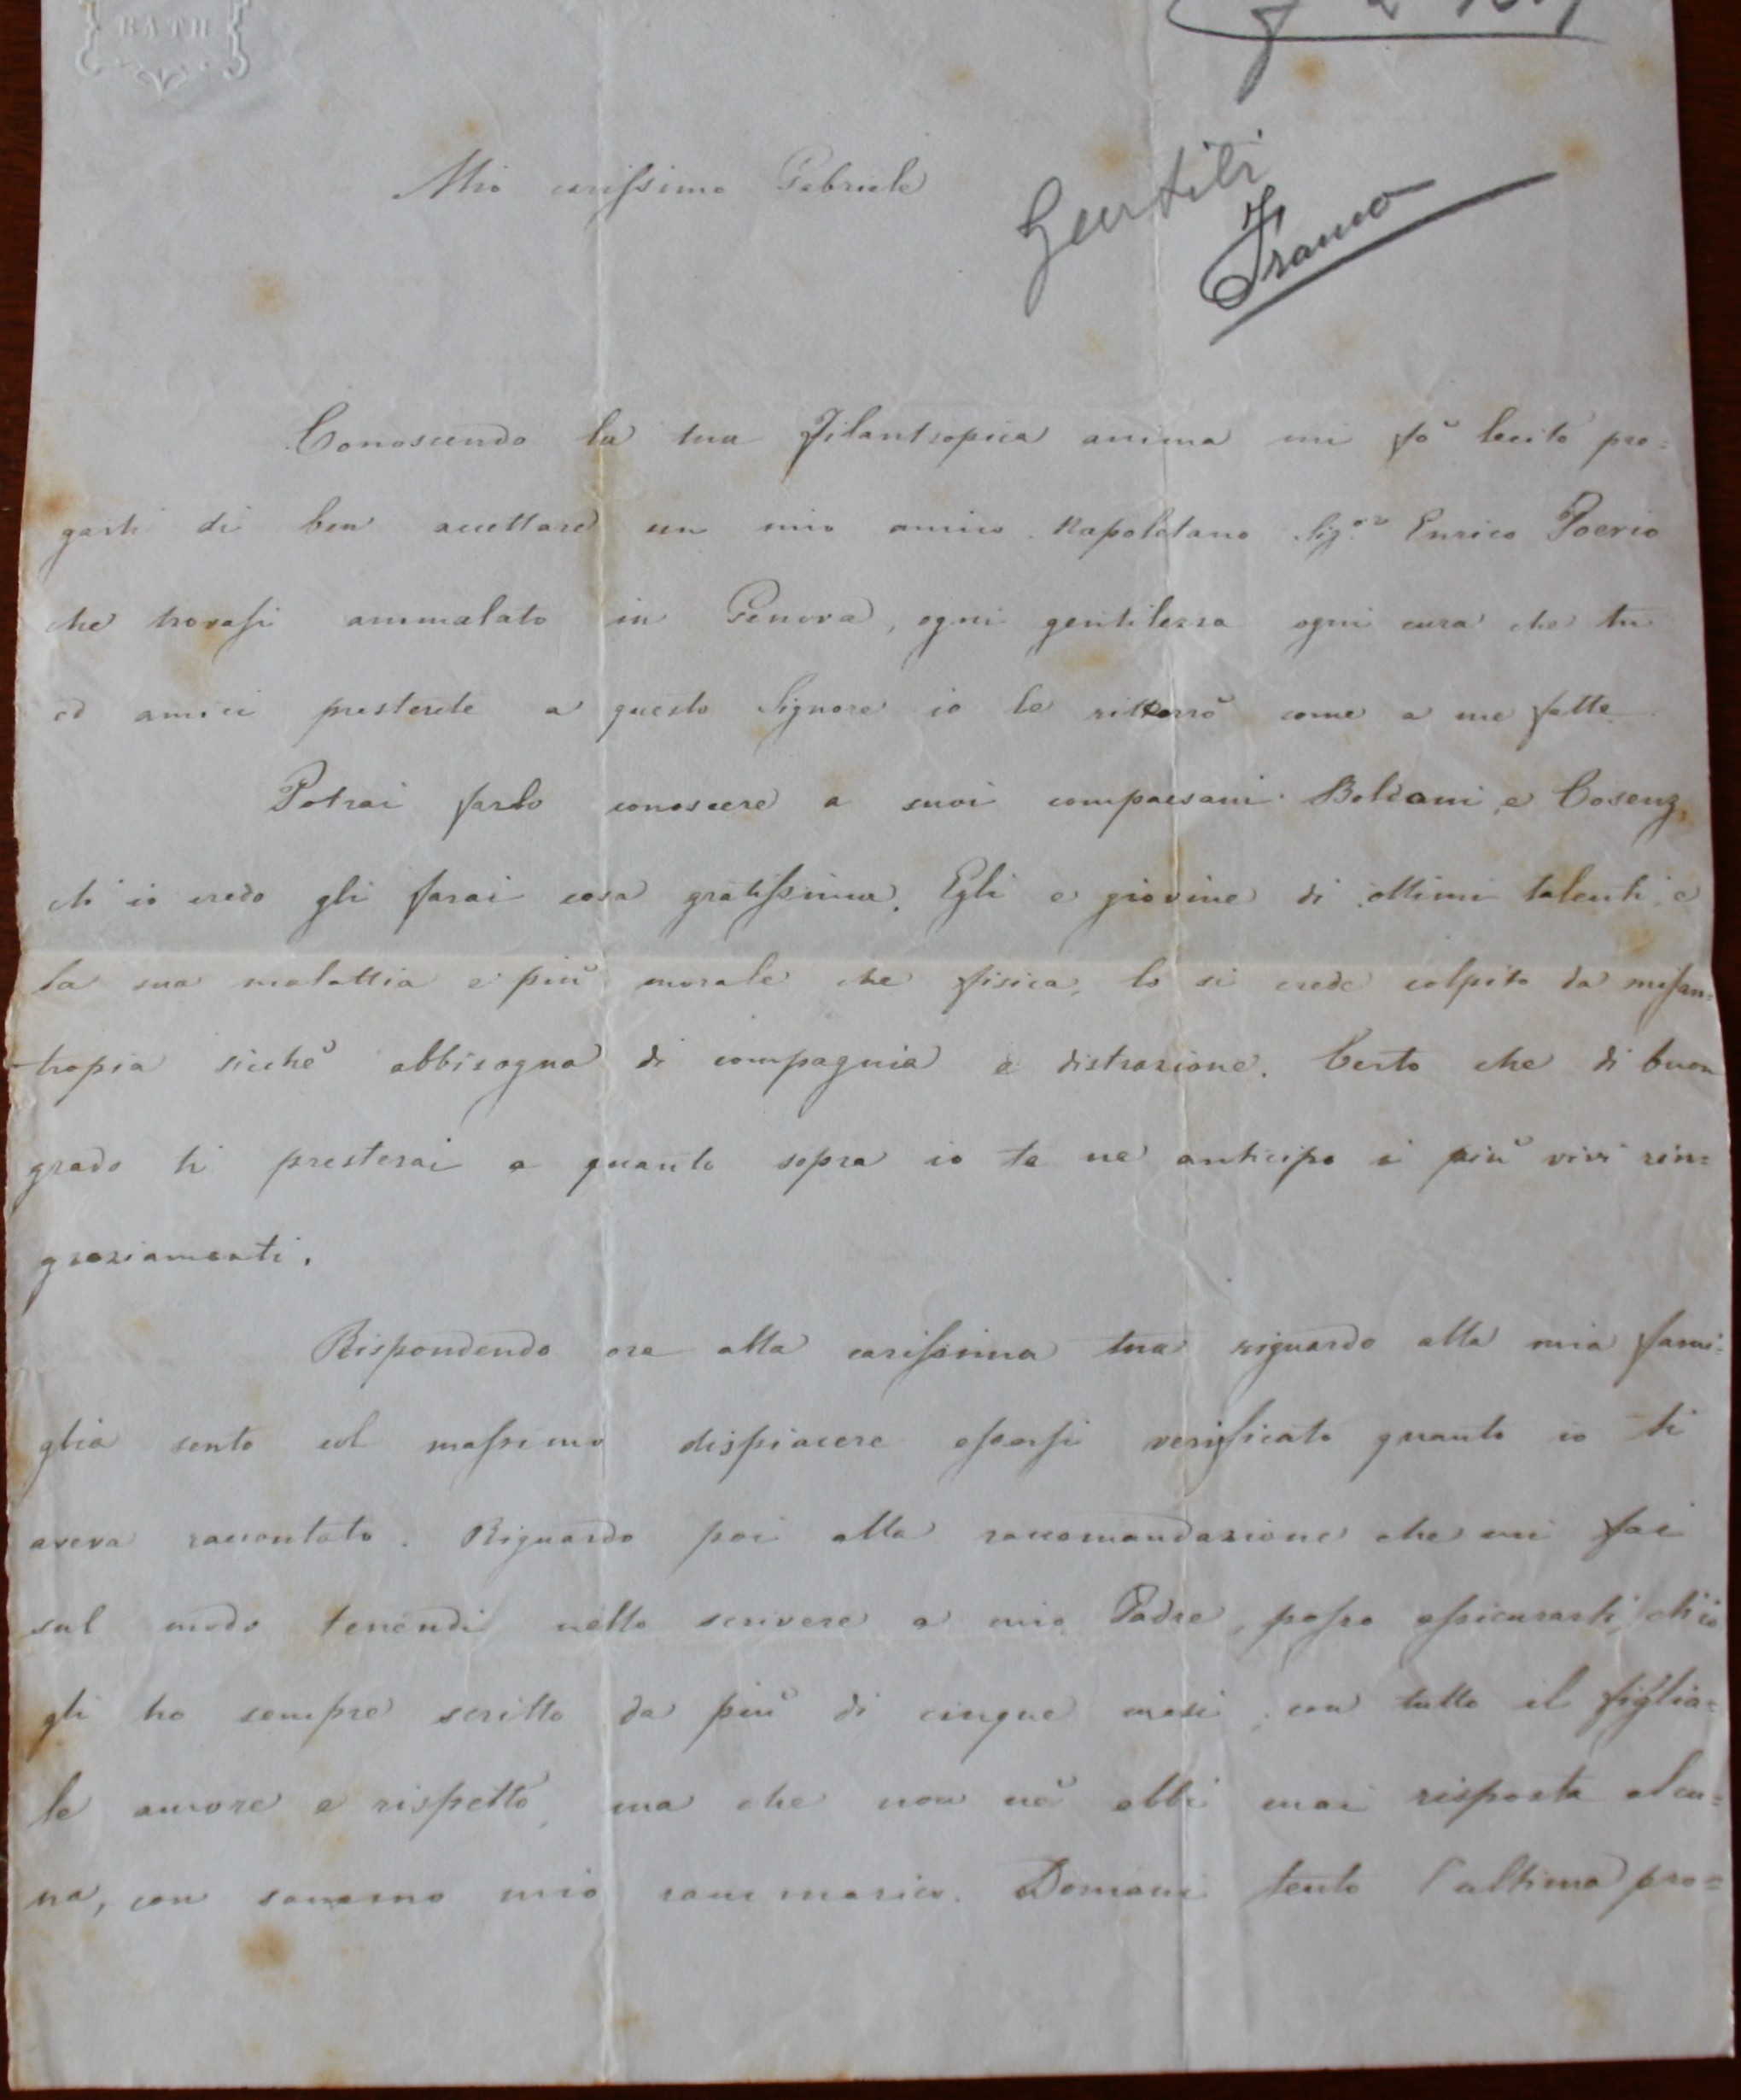 BATH
Mio carissimo Gabriele
Gentili
Franco
Conoscendo la tua Filantropica anima mi fò lecito pre=
garti di ben accettare un mio amico Napoletano Sig.or Enrico Poerio
che trovasi ammalato in Genova, ogni gentilezza ogni cura che tu
ed amici presterete a questo Signore io le ritterrò come a me fatte
Potrai farlo conoscere a suoi compaesani Boldoni e Cosenz,
ch'io credo gli farai cosa gratissima. Egli e giovine di ottimi talenti e
la sua malattia e più morale che fisica, lo si crede colpito da misan=
tropia sicchè abbisogna di compagnia e distrazione. Certo che di buon
grado ti presterai a quanto sopra io te ne anticipo i più vivi rin=
graziamenti.
Rispondendo ora alla carissima tua riguardo alla mia fami=
glia sento col massimo dispiacere essersi verificato quanto io ti
aveva raccontato. Riguardo poi alla raccomandazione che mi fai
sul modo tenendi nello scrivere a mio Padre, posso assicurarti, ch'io
gli ho sempre scritto da più di cinque mesi, con tutto il figlia=
le amore e rispetto, ma che non nè ebbi mai risposta alcu=
na, con sommo mio rammarico. Domani tento l'ultima pro=